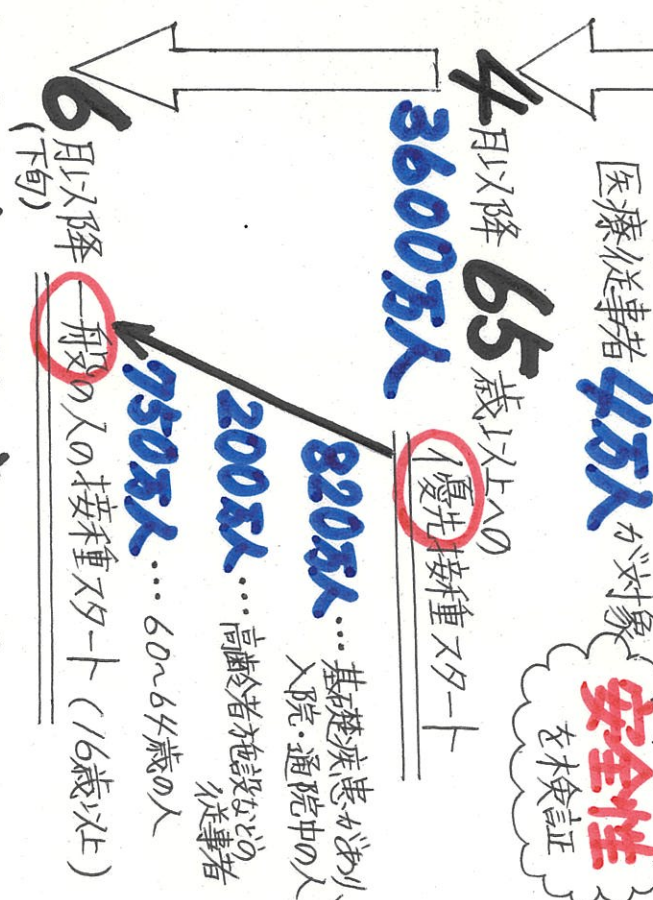 医療従事者4万人が対象
安全性
を検証
4月以降 65歳以上への
優先接種スタート
3600万人
820万人…基礎疾患があり、
入院・通院中の人
200万人…高齢者施設などの
従事者
750万人…60~64歳の人
6月以降 一般の人の接種スタート(16歳以上)
(下旬)